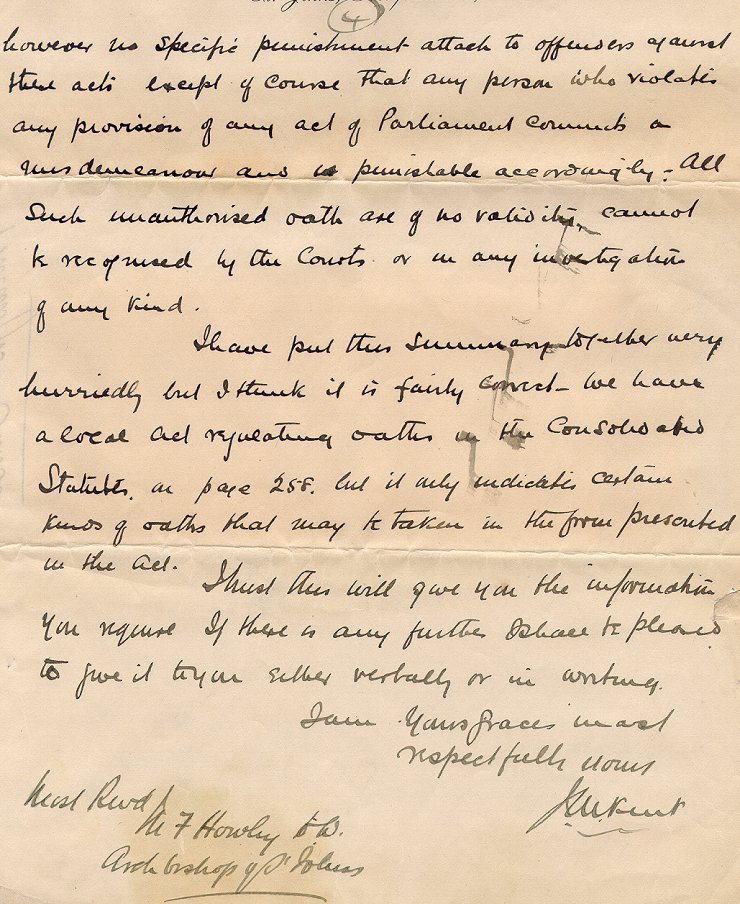 4
however no specific punishment attach to offenders against
these acts except of course that any person who violates
any provision of any act of Parliament commits a
misdemeanour and is punishable accordingly – All
Such unauthorised oath are of no validity, cannot
be recognised by the Courts or in any investigation
of any kind.
I have put this Summary together very
hurriedly but I think it is fairly correct – We have
a local Act regulating oaths in the Consolidated
Statutes, on page 258. but it only indicates certain
kinds of oaths that may be taken in the from prescribed
in the Act.
I trust this will give you the information
You require If there is any further I shall be pleased
to give it to you either verbally or in writing.
I am Yours Graces most
respectfully yours
J M Kent
Most Revd
M F Howley
Archbishop of St Johns